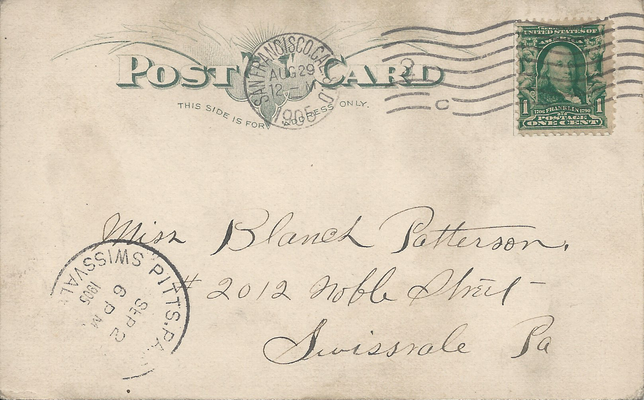 POST CARD
THIS SIDE IS FOR ADDRESS ONLY.
SAN FRANCISCO, CAL.
AUG 29
12 - M
1905
UNITED STATES OF
1 FRANKLIN 1
POSTAGE
ONE CENT
Miss Blanch Patterson.
# 2012 Noble Street
Swissvale Pa
PITTS. PA.
SWISSVAL
SEP 2
6 P M
1905